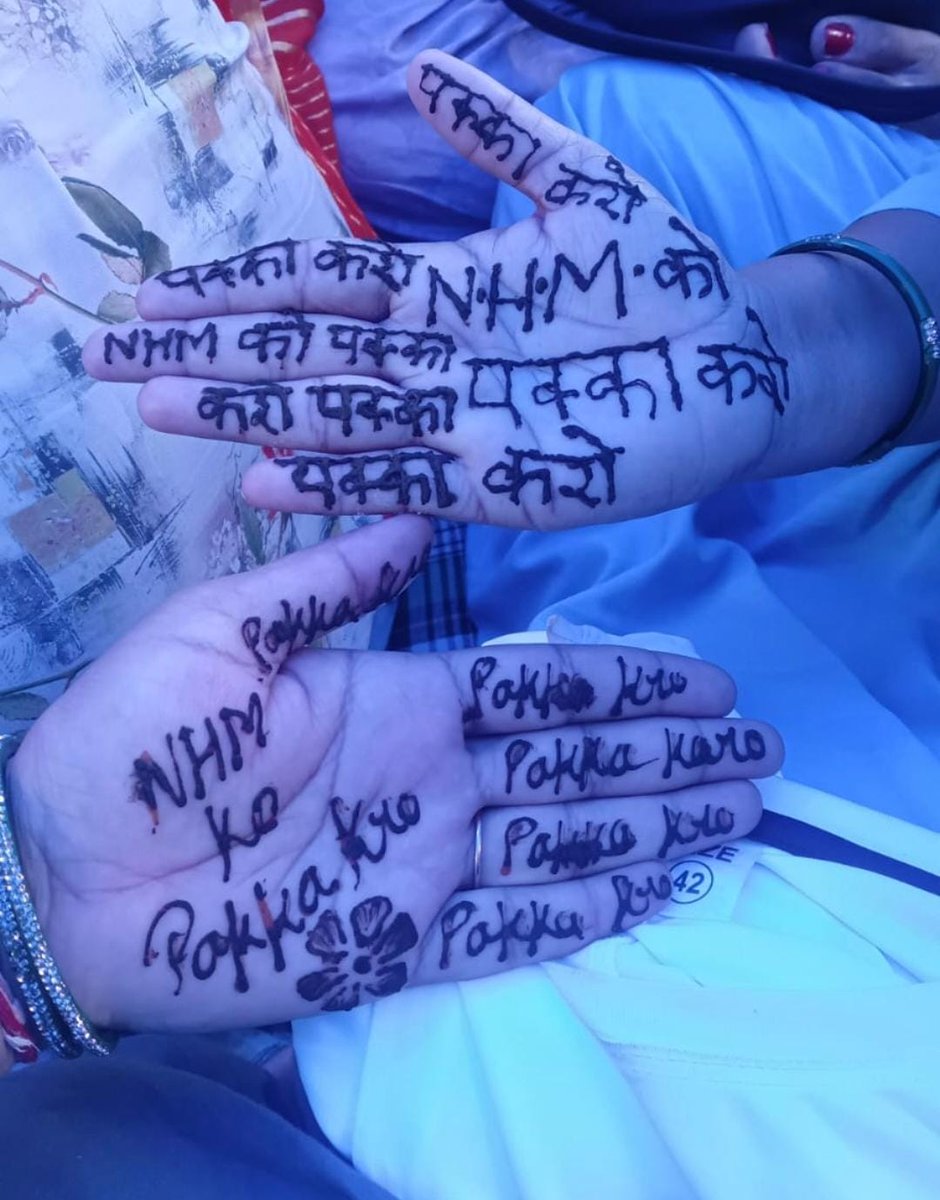 पक्का
करो
पक्का करो
N.H.M. को
NHM को पक्का
पक्का करो
करो पक्का
पक्का करो
Pakka
NHM
ko
Pakka kro
Pakka kro
Pakka karo
Pakka kro
Pakka kro
LE
42